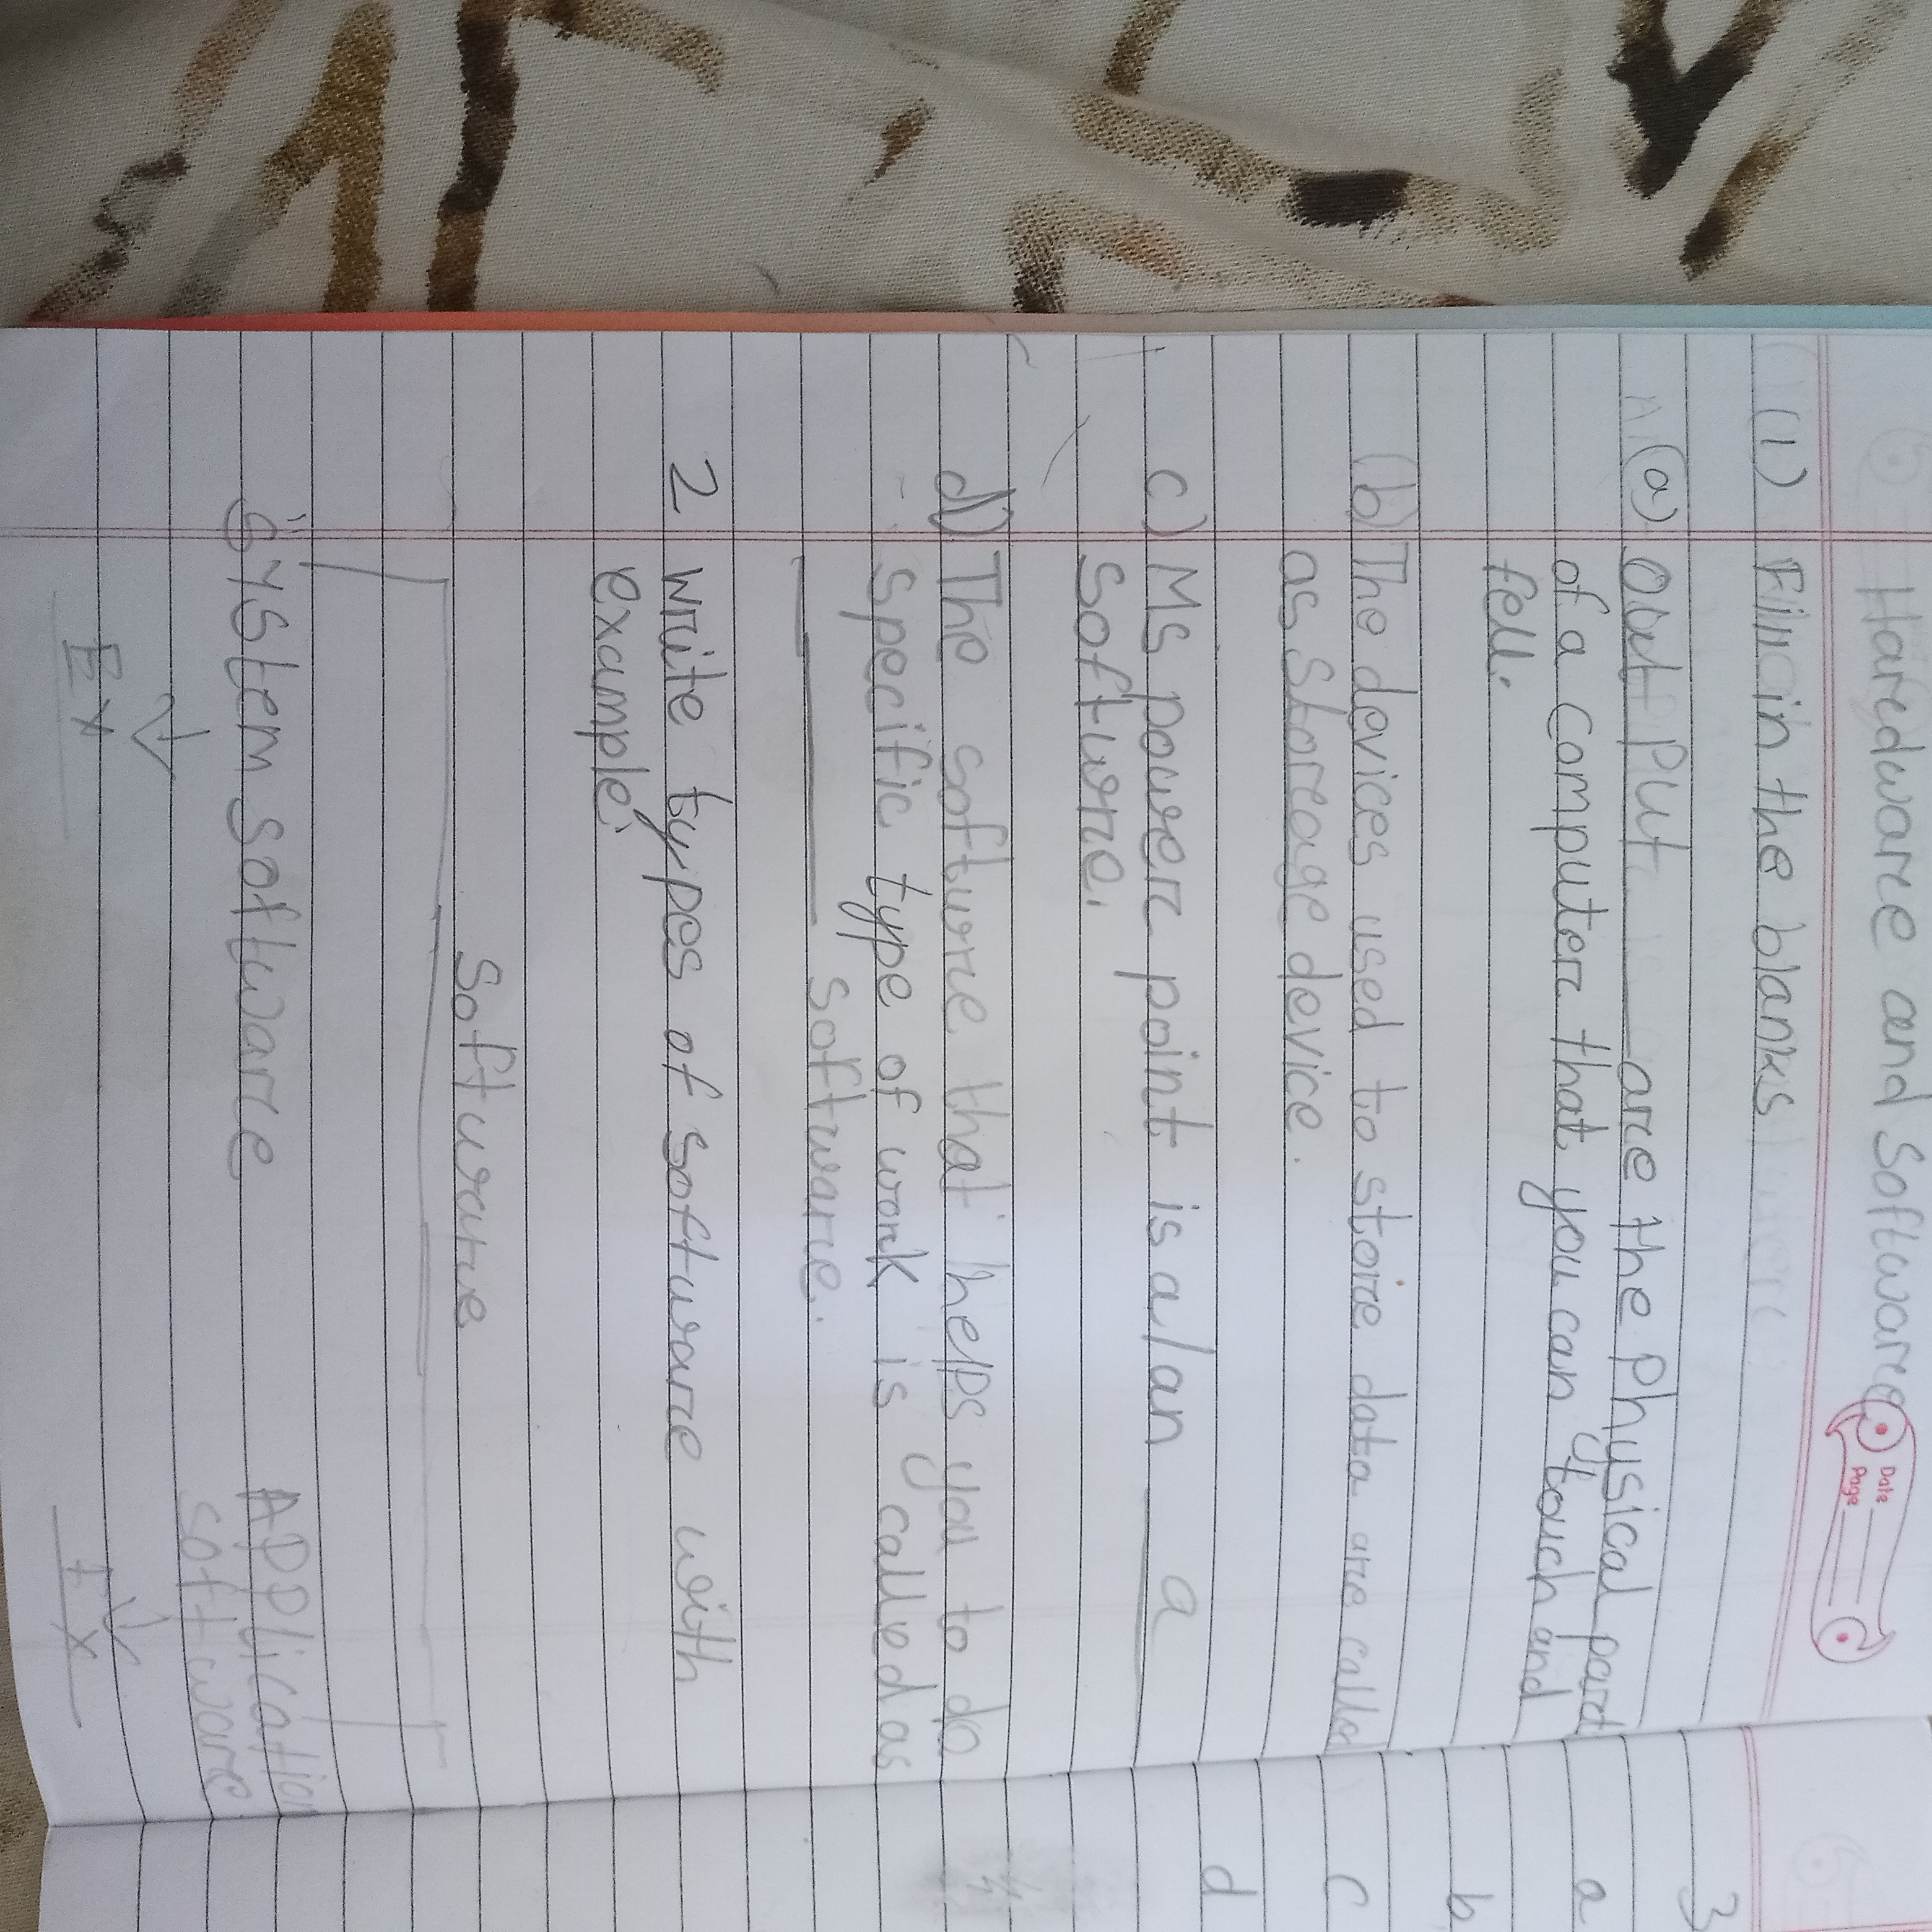 Haredware and Software
Date
Page
(1) Fill in the blanks
(a) Out Put are the physical part
of a computer that you can touch and
fell.
(b) The devices used to store data are called
as Storeage device.
c) Ms power point is a/an a
Software.
d) The software that helps you to do
specific type of work is called as
software.
2 write types of software with
example.
Software
System software
Application
software
Ex
Ex
3
a
b
c
d